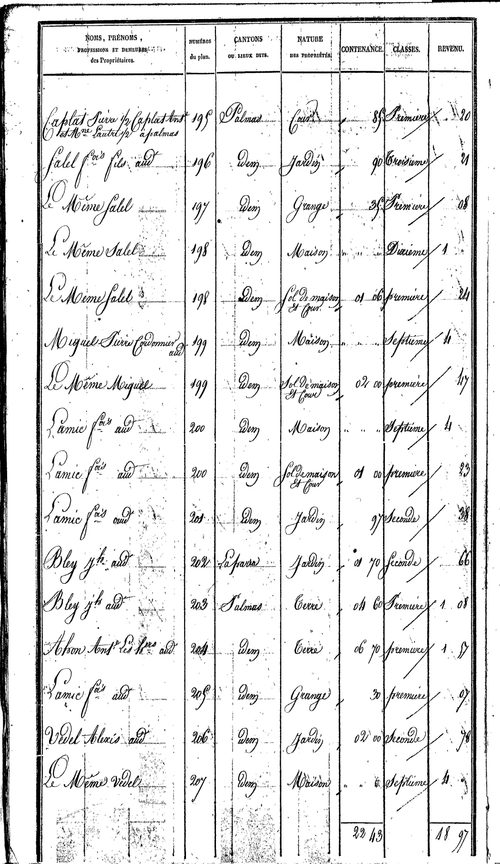 NOMS, PRÉNOMS, PROFESSIONS ET DEMEURES des Propriétaires. NUMÉROS du plan. CANTONS OU LIEUX DITS. NATURE DES PROPRIÉTÉS. CONTENANCE. CLASSES. REVENU.
Caplat Pierre 1/2 Caplat Ant
et Lautrel 1/2 a palmas 195 Palmas Cour 85 Premiere 20
Salel fois fils aud 196 idem Jardin 90 Troisieme 21
Le Même Salel 197 idem Grange 35 Premiere 08
Le Même Salel 198 idem Maison Dixieme 1
Le Même Salel 198 idem Sol de maison et Cour 01 06 premiere 24
Miquel Pierre Cordonnier aud 199 idem Maison Septieme 4
Le Même Miquel 199 idem Sol de maison et Cour 02 00 premiere 47
Lamic fois aud 200 idem Maison Septieme 4
Lamic fois aud 200 idem Sol de maison et Cour 01 00 premiere 23
Lamic fois aud 201 idem Jardin 97 Seconde 38
Bley jh aud 202 Laparra Jardin 01 70 Seconde 66
Bley jh aud 203 Palmas Terre 04 60 Premiere 1 08
Ant Les hers aud 204 idem Terre 06 70 premiere 1 57
Lamic fois aud 205 idem Grange 30 premiere 07
Vedel Alexis aud 206 idem Jardin 02 00 Seconde 78
Le Même Vedel 207 idem Maison Septieme 4
22 43 18 97